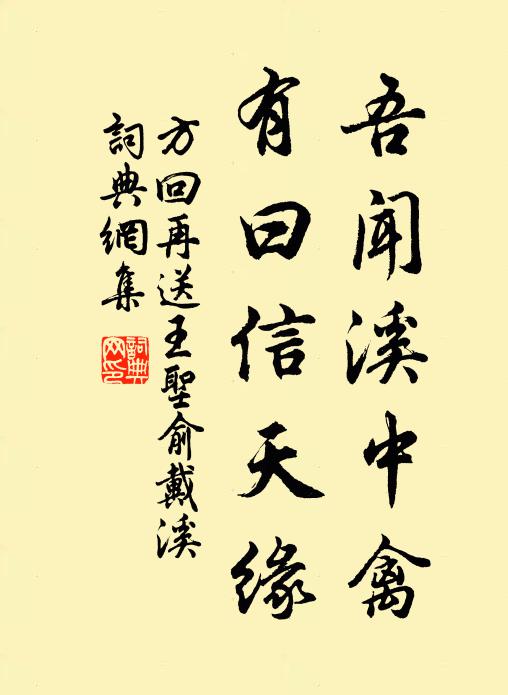 吾闻溪中禽
有曰信天缘
方回再送王聖俞戴溪
詞典網集
詞典网印